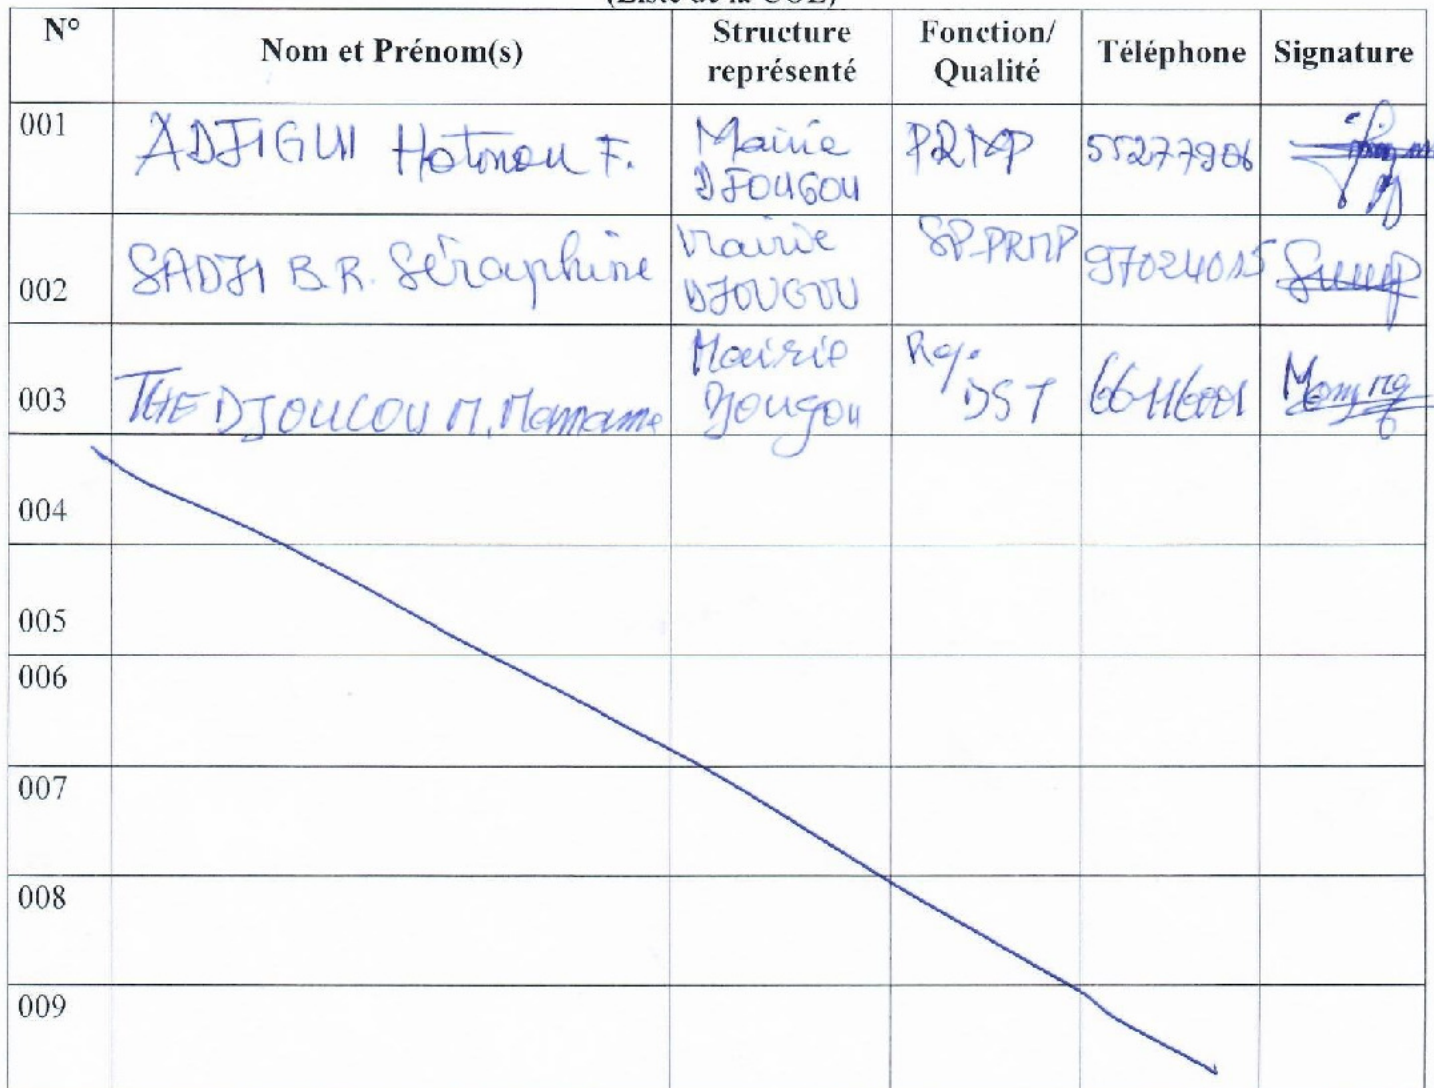 (Liste de la COE)
N° Nom et Prénom(s) Structure représenté Fonction/ Qualité Téléphone Signature
001 ADJIGUI Hotonou F. Mairie DJOUGOU PRMP 55277906
002 SADJI B.R. Séraphine Mairie DJOUGOU SP-PRMP 97024015
003 THE DJOUCOU M. Mamame Mairie Djougou Rep. DST 66116001
004
005
006
007
008
009